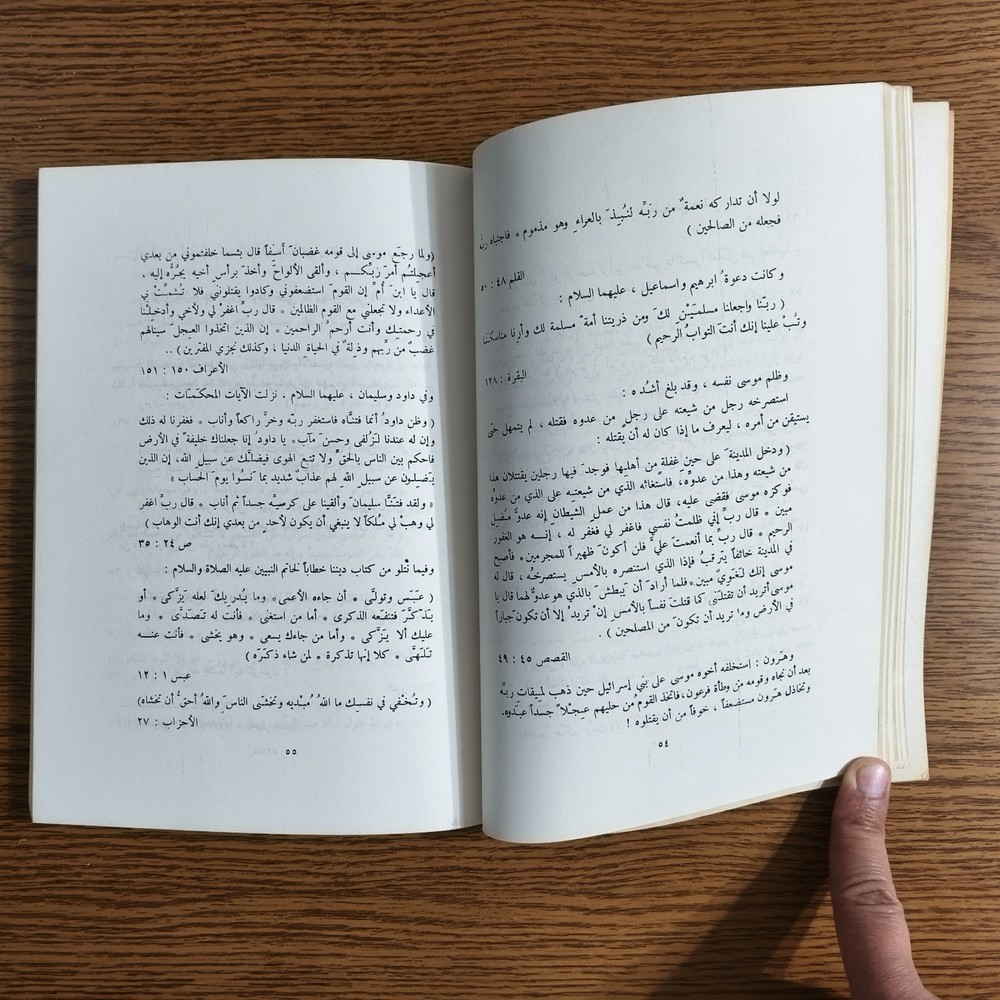 لولا أن تداركه نعمةٌ من ربّه لنُبِذَ بالعراء وهو مذموم * فاجتباه ربّه
فجعله من الصالحين )
القلم ٤٨ : ٥٠
وكانت دعوةُ ابرهيم واسماعيل ، عليهما السلام :
( ربّنا واجعلنا مسلمَيْن لكَ ومن ذريتنا أمةً مسلمة لك وأرِنا مناسكَنا
وتُبْ علينا إنك أنتَ التواب الرحيم )
البقرة : ١٢٨
وظلم موسى نفسه ، وقد بلغ أشُدّه :
استصرخه رجل من شيعته على رجل من عدوه فقتله ، لم يتمهل حتى
يستيقن من أمره ، ليعرف ما إذا كان له أن يقتله :
( ودخل المدينةَ على حينِ غفلة من أهلها فوجدَ فيها رجلين يقتتلان هذا
من شيعته وهذا من عدوّه، فاستغاثه الذي من شيعته على الذي من عدوّه
فوكزه موسى فقضى عليه، قال هذا من عمل الشيطان إنه عدوٌّ مُضِل
مبين * قال ربِّ إني ظلمتُ نفسي فاغفر لي فغفر له ، إنه هو الغفور
الرحيم * قال ربِّ بما أنعمتَ عليّ فلن أكونَ ظهيراً للمجرمين * فأصبح
في المدينة خائفاً يترقبُ فإذا الذي استنصره بالأمس يستصرخُه ، قال له
موسى إنك لَغَوِيٌّ مبين * فلما أرادَ أن يبطشَ بالذي هو عدوٌّ لهما قال يا
موسى أتريد أن تقتلَني كما قتلتَ نفساً بالأمس إنْ تريدُ إلا أن تكون جباراً
في الأرض وما تريد أن تكونَ من المصلحين ) .
القصص ٤٥ : ٤٩
وهرون : استخلفه أخوه موسى على بني إسرائيل حين ذهب لميقات ربّه
بعد أن نجاه وقومه من وطأة فرعون، فاتخذ القومُ من حليهم عِجْلاً جسداً عبدوه.
وتخاذل هرون مستضعفاً ، خوفاً من أن يقتلوه !
٥٤
(ولما رجَع موسى إلى قومه غضبانَ أسِفاً قال بئسما خلفتموني من بعدي
أعجِلتُم أمرَ ربِّكم ، وألقى الألواحَ وأخذ برأس أخيه يجُرُّه إليه ،
قال يا ابنَ أمَّ إن القومَ استضعفوني وكادوا يقتلونني فلا تُشمِتْ بي
الأعداء ولا تجعلني مع القوم الظالمين * قال ربِّ اغفرْ لي ولأخي وأدخِلْنا
في رحمتِك وأنت أرحمُ الراحمين * إن الذين اتخذوا العجلَ سينالهم
غضبٌ من ربِّهم وذِلةٌ في الحياةِ الدنيا ، وكذلك نجزي المفترين ) ..
الأعراف ١٥٠ : ١٥١
وفي داود وسليمان ، عليهما السلام ، نزلت الآيات المحكَمات :
( وظن داودُ أنما فتنَّاه فاستغفر ربّه وخرَّ راكعاً وأناب * فغفرنا له ذلك
وإن له عندنا لَزُلفى وحسنَ مآب * يا داودُ إنا جعلناك خليفةً في الأرض
فاحكم بين الناس بالحقِّ ولا تتبع الهوى فيضلَّك عن سبيل الله، إن الذين
يَضِلون عن سبيل الله لهم عذاب شديد بما نَسوا يومَ الحساب »
« ولقد فتنَّا سليمانَ وألقينا على كرسيّه جسداً ثم أناب * قال ربِّ اغفر
لي وهبْ لي مُلكاً لا ينبغي أن يكون لأحدٍ من بعدي إنك أنت الوهاب )
ص ٢٤ : ٣٥
وفيما نتلو من كتاب ديننا خطاباً لخاتم النبيين عليه الصلاة والسلام :
( عبَسَ وتولَّى * أن جاءه الأعمى * وما يُدريكَ لعله يَزَّكى * أو
يَذّكَّرُ فتنفعَه الذكرى * أما من استغنى * فأنت له تَصَدَّى * وما
عليك ألا يَزَّكى * وأما من جاءك يسعى * وهو يخشى * فأنت عنه
تَلَهَّى * كلا إنها تذكرة * لمن شاء ذكَرَه )
عبس ١ : ١٢
( وتُخفي في نفسك ما اللهُ مُبْديه وتخشَى الناسَ واللهُ أحقُّ أن تخشاه)
الأحزاب : ٢٧
٥٥